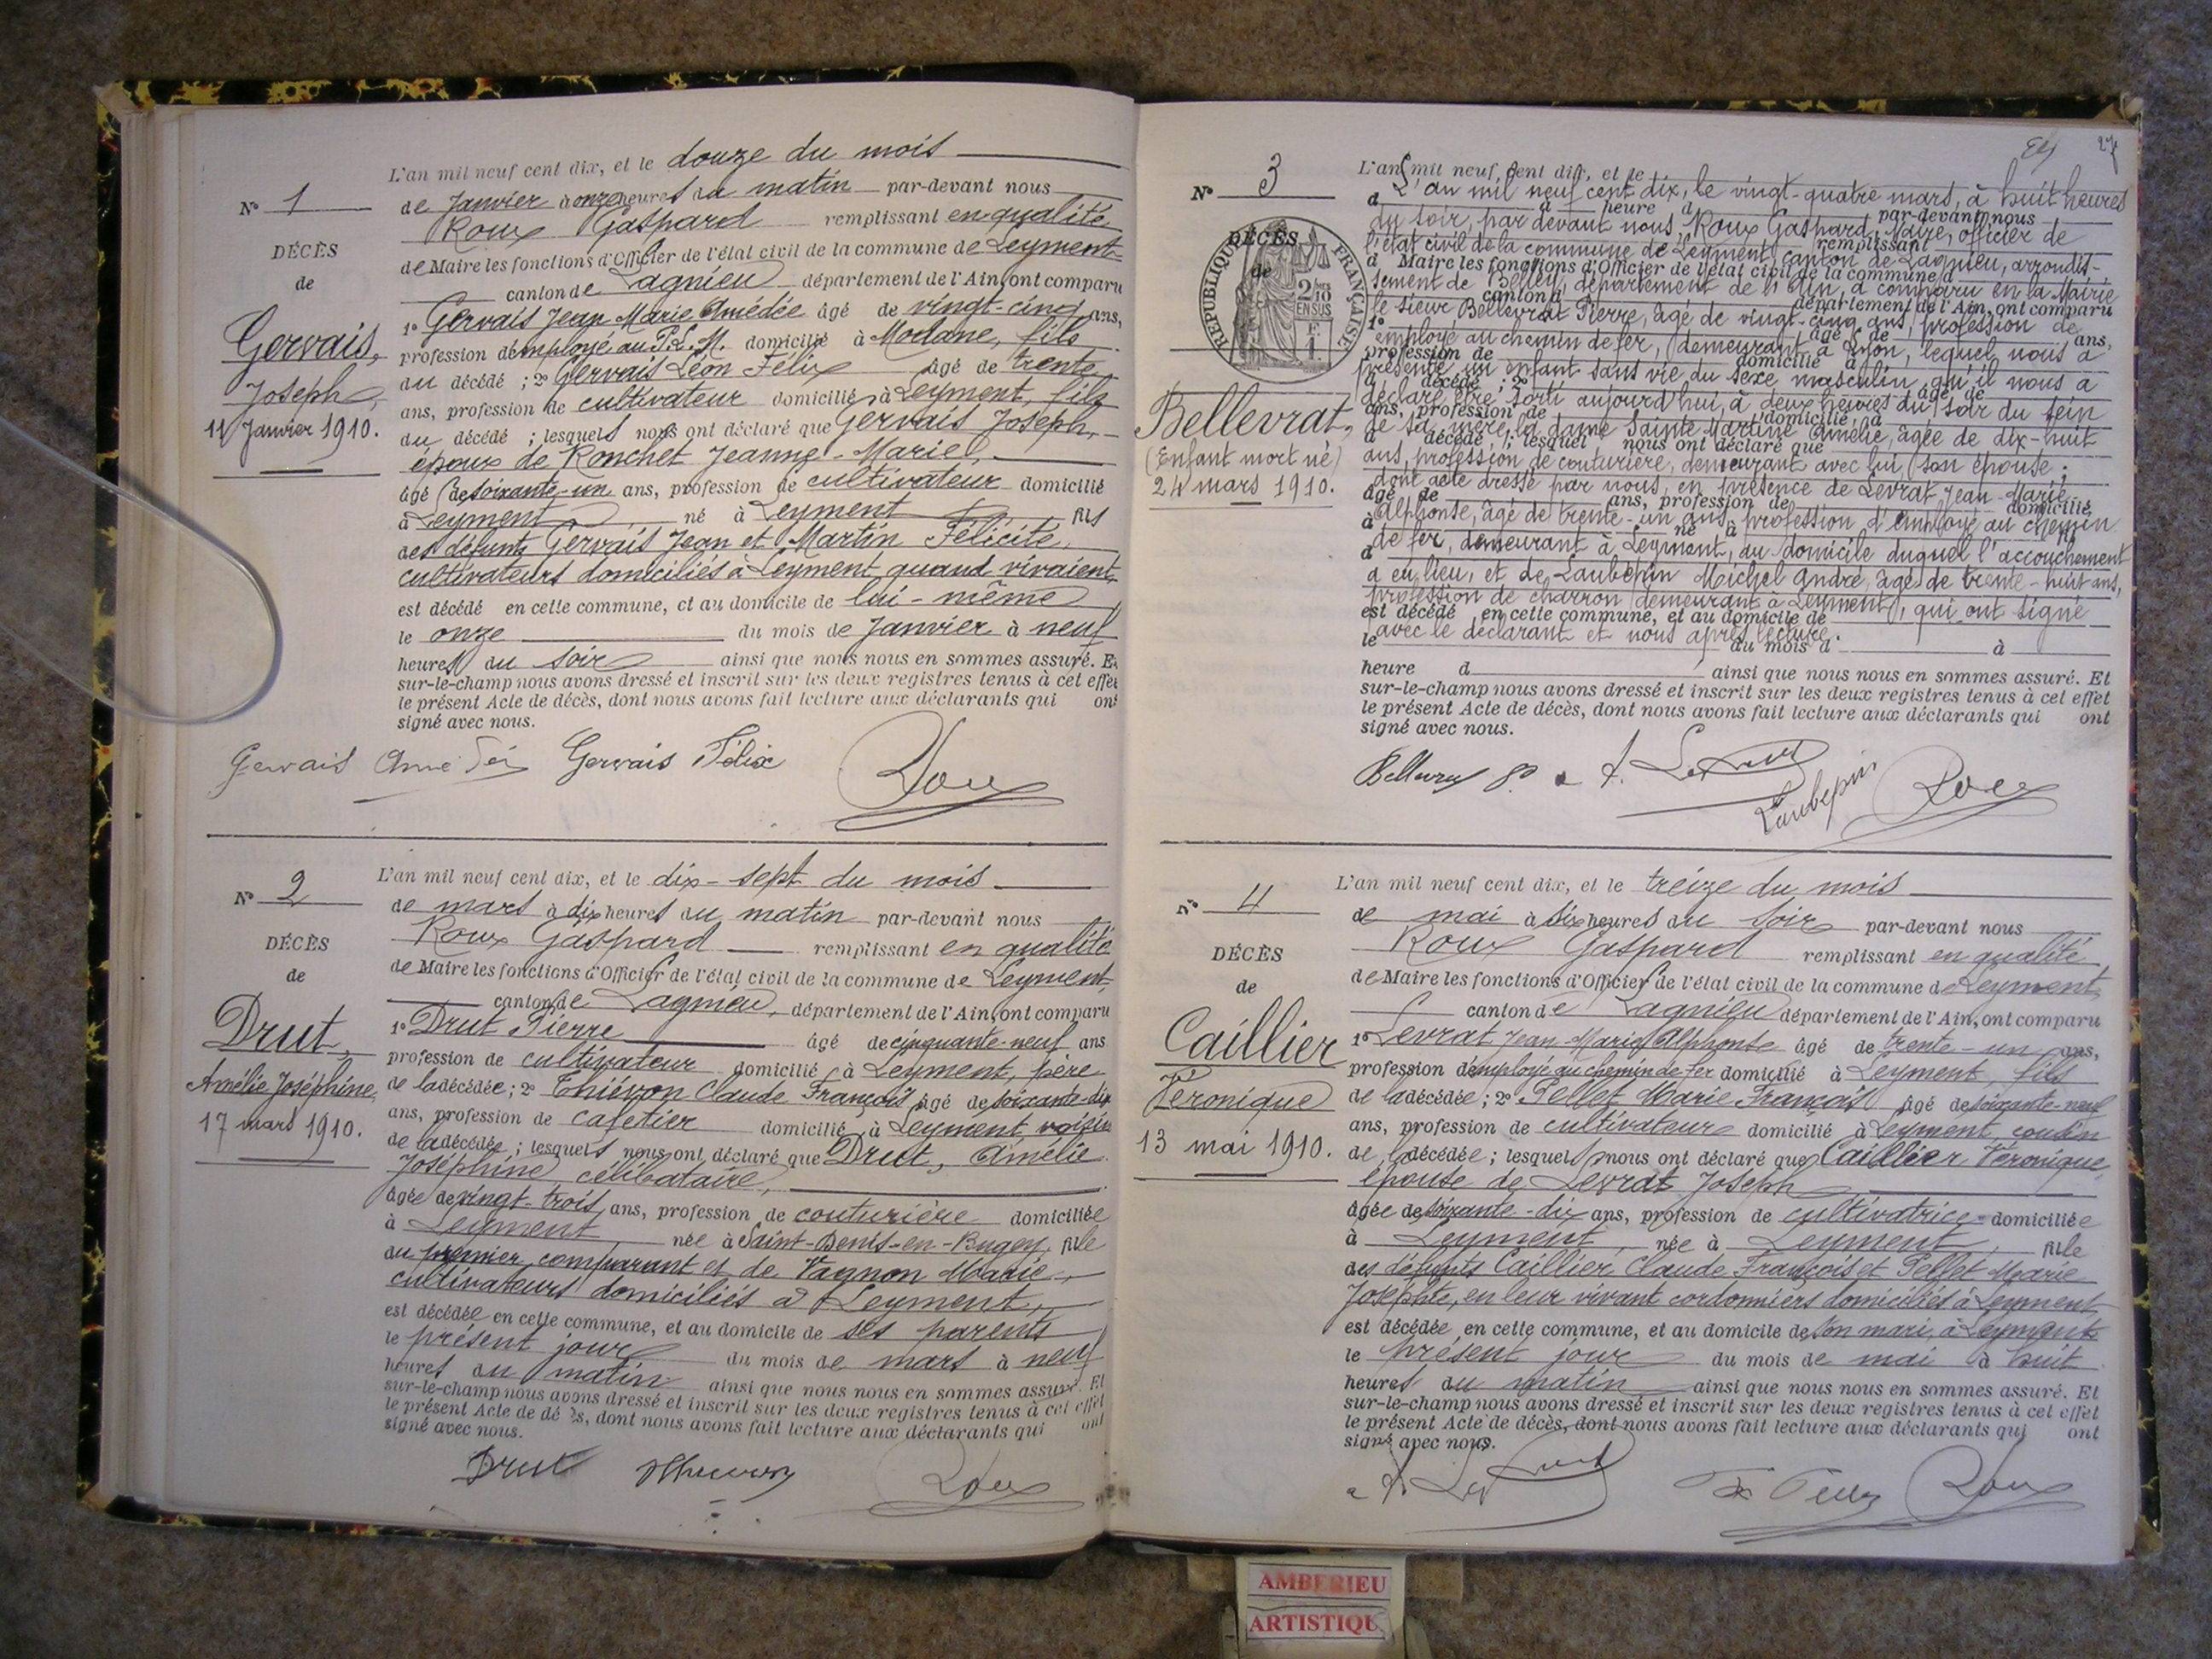 N° 1
DÉCÈS
de
Gervais,
Joseph,
11 Janvier 1910.
L'an mil neuf cent dix, et le douze du mois
de Janvier à onze heures du matin par-devant nous
Roux Gaspard remplissant en qualité
de Maire les fonctions d'Officier de l'état civil de la commune de Leyment
canton de Lagnieu département de l'Ain, ont comparu
1° Gervais Jean Marie Amédée âgé de vingt-cinq ans,
profession d'employé au P.L.M. domicilié à Modane, fils
du décédé ; 2° Gervais Léon Félix âgé de trente
ans, profession de cultivateur domicilié à Leyment, fils
du décédé ; lesquels nous ont déclaré que Gervais Joseph,
époux de Ronchet Jeanne-Marie,
âgé de soixante-un ans, profession de cultivateur domicilié
à Leyment né à Leyment fils
des défunts Gervais Jean et Martin Félicité,
cultivateurs domiciliés à Leyment quand vivaient,
est décédé en cette commune, et au domicile de lui-même
le onze du mois de Janvier à neuf
heures du soir ainsi que nous nous en sommes assuré. Et
sur-le-champ nous avons dressé et inscrit sur les deux registres tenus à cet effet
le présent Acte de décès, dont nous avons fait lecture aux déclarants qui ont
signé avec nous.
Gervais Amédée Gervais Félix Roux
N° 2
DÉCÈS
de
Drut,
Amélie Joséphine,
17 mars 1910.
L'an mil neuf cent dix, et le dix-sept du mois
de mars à dix heures du matin par-devant nous
Roux Gaspard remplissant en qualité
de Maire les fonctions d'Officier de l'état civil de la commune de Leyment,
canton de Lagnieu, département de l'Ain, ont comparu
1° Drut Pierre âgé de cinquante-neuf ans
profession de cultivateur domicilié à Leyment, père
de la décédée ; 2° Thiévon Claude François âgé de soixante-dix
ans, profession de cafetier domicilié à Leyment, voisin
de la décédée ; lesquels nous ont déclaré que Drut, Amélie
Joséphine célibataire,
âgée de vingt-trois ans, profession de couturière domiciliée
à Leyment née à Saint-Denis-en-Bugey, fille
du premier comparant et de Vagnon Marie,
cultivateurs domiciliés à Leyment,
est décédée en cette commune, et au domicile de ses parents
le présent jour du mois de mars à neuf
heures du matin ainsi que nous nous en sommes assuré. Et
sur-le-champ nous avons dressé et inscrit sur les deux registres tenus à cet effet
le présent Acte de décès, dont nous avons fait lecture aux déclarants qui ont
signé avec nous.
Drut Roux
27
N° 3
DÉCÈS
de
RÉPUBLIQUE FRANÇAISE
2/10
EN SUS
Bellevrat,
(Enfant mort né)
24 mars 1910.
L'an mil neuf cent dix, et le
L'an mil neuf cent dix, le vingt-quatre mars, à huit heures
à heure d par-devant nous
du soir, par devant nous, Roux Gaspard, Maire, officier de
remplissant
l'état civil de la commune de Leyment, canton de Lagnieu, arrondis-
d Maire les fonctions d'Officier de l'état civil de la commune d
sement de Belley, département de l'Ain, a comparu en la Mairie
canton d département de l'Ain, ont comparu
le sieur Bellevrat Pierre, âgé de vingt-cinq ans, profession de
1° âgé de ans,
employé au chemin de fer, demeurant à Lyon, lequel nous a
profession de domicilié à
présenté un enfant sans vie du sexe masculin, qu'il nous a
d décédé ; 2° âgé de
déclaré être sorti aujourd'hui, à deux heures du soir du sein
ans, profession de domicilié à
de sa mère la dame Sainte Martine Amélie, âgée de dix-huit
d décédé ; lesquel nous ont déclaré que
ans, profession de couturière, demeurant avec lui, son épouse ;
dont acte dressé par nous, en présence de Levrat Jean-Marie
âgé de ans, profession de domicilié
Alphonse, âgé de trente-un ans, profession d'employé au chemin
à né à
de fer, demeurant à Leyment, au domicile duquel l'accouchement
a eu lieu, et de Laubépin Michel André, âgé de trente-huit ans,
profession de charron demeurant à Leyment, qui ont signé
est décédé en cette commune, et au domicile de
avec le déclarant et nous après lecture.
le du mois d à
heure d ainsi que nous nous en sommes assuré. Et
sur-le-champ nous avons dressé et inscrit sur les deux registres tenus à cet effet
le présent Acte de décès, dont nous avons fait lecture aux déclarants qui ont
signé avec nous.
Laubépin Roux
N° 4
DÉCÈS
de
Caillier
Véronique
13 mai 1910.
L'an mil neuf cent dix, et le treize du mois
de mai à six heures du soir par-devant nous
Roux Gaspard remplissant en qualité
de Maire les fonctions d'Officier de l'état civil de la commune de Leyment
canton de Lagnieu département de l'Ain, ont comparu
1° Levrat Jean-Marie Alphonse âgé de trente-un ans,
profession d'employé au chemin de fer domicilié à Leyment, fils
de la décédée ; 2° Pellet Marie François âgé de soixante-neuf
ans, profession de cultivateur domicilié à Leyment, cousin
de la décédée ; lesquels nous ont déclaré que Caillier Véronique,
épouse de Levrat Joseph
âgée de soixante-dix ans, profession de cultivatrice domiciliée
à Leyment, née à Leyment, fille
des défunts Caillier Claude François et Pellet Marie
Josephte, en leur vivant cordonniers domiciliés à Leyment,
est décédée en cette commune, et au domicile de son mari, à Leyment
le présent jour du mois de mai à huit
heures du matin ainsi que nous nous en sommes assuré. Et
sur-le-champ nous avons dressé et inscrit sur les deux registres tenus à cet effet
le présent Acte de décès, dont nous avons fait lecture aux déclarants qui ont
signé avec nous.
Roux
AMBERIEU
ARTISTIQU